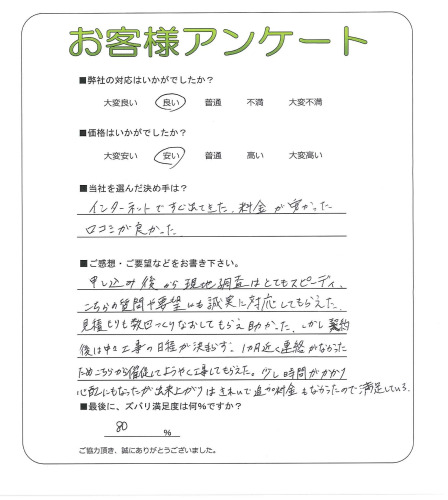 お客様アンケート
■弊社の対応はいかがでしたか？
大変良い 良い 普通 不満 大変不満
■価格はいかがでしたか？
大変安い 安い 普通 高い 大変高い
■当社を選んだ決め手は？
インターネットですぐ出てきた、料金が安かった
口コミが良かった
■ご感想・ご要望などをお書き下さい。
申し込み後から現地調査はとてもスピーディ、
こちらの質問や要望にも誠実に対応してもらえた、
見積もりも数回つくりなおしてもらえ助かった、しかし契約
後は中々工事の日程が決まらず、1カ月近く連絡がなかった
ためこちらから催促してようやく工事してもらえた。少し時間がかかり
心配にもなったが出来上がりはきれいで追加料金もなかったので満足している。
■最後に、ズバリ満足度は何%ですか？
80 %
ご協力頂き、誠にありがとうございました。